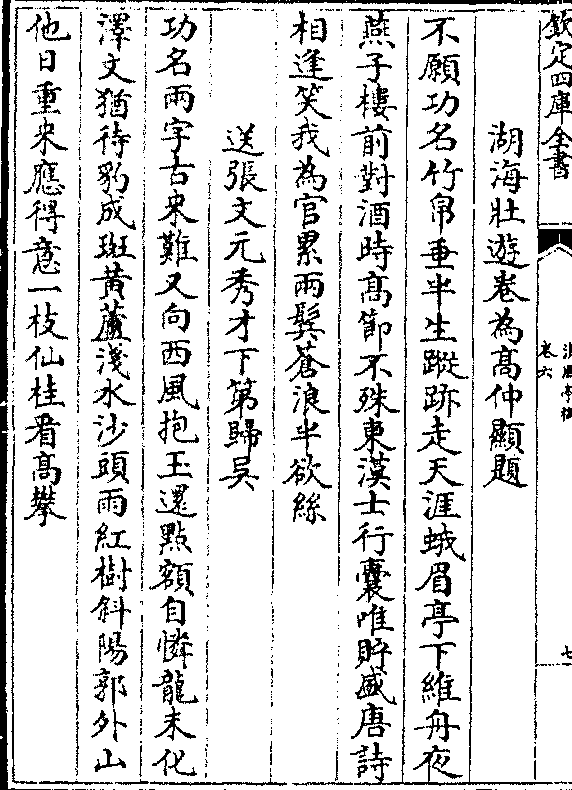 欽定四庫全書
卷六
七
湖海壯遊卷為髙仲顯題
不願功名竹帛垂半生蹤跡走天涯蛾眉亭下維舟夜
燕子樓前對酒時髙節不殊東漢士行囊唯貯盛唐詩
相逢笑我為官累兩鬢蒼浪半欲絲
送張文元秀才下第歸吳
功名兩字古來難又向西風抱玉還點額自憐龍未化
澤文猶待豹成斑黄蘆淺水沙頭雨紅樹斜陽郭外山
他日重來應得意一枝仙桂看髙攀